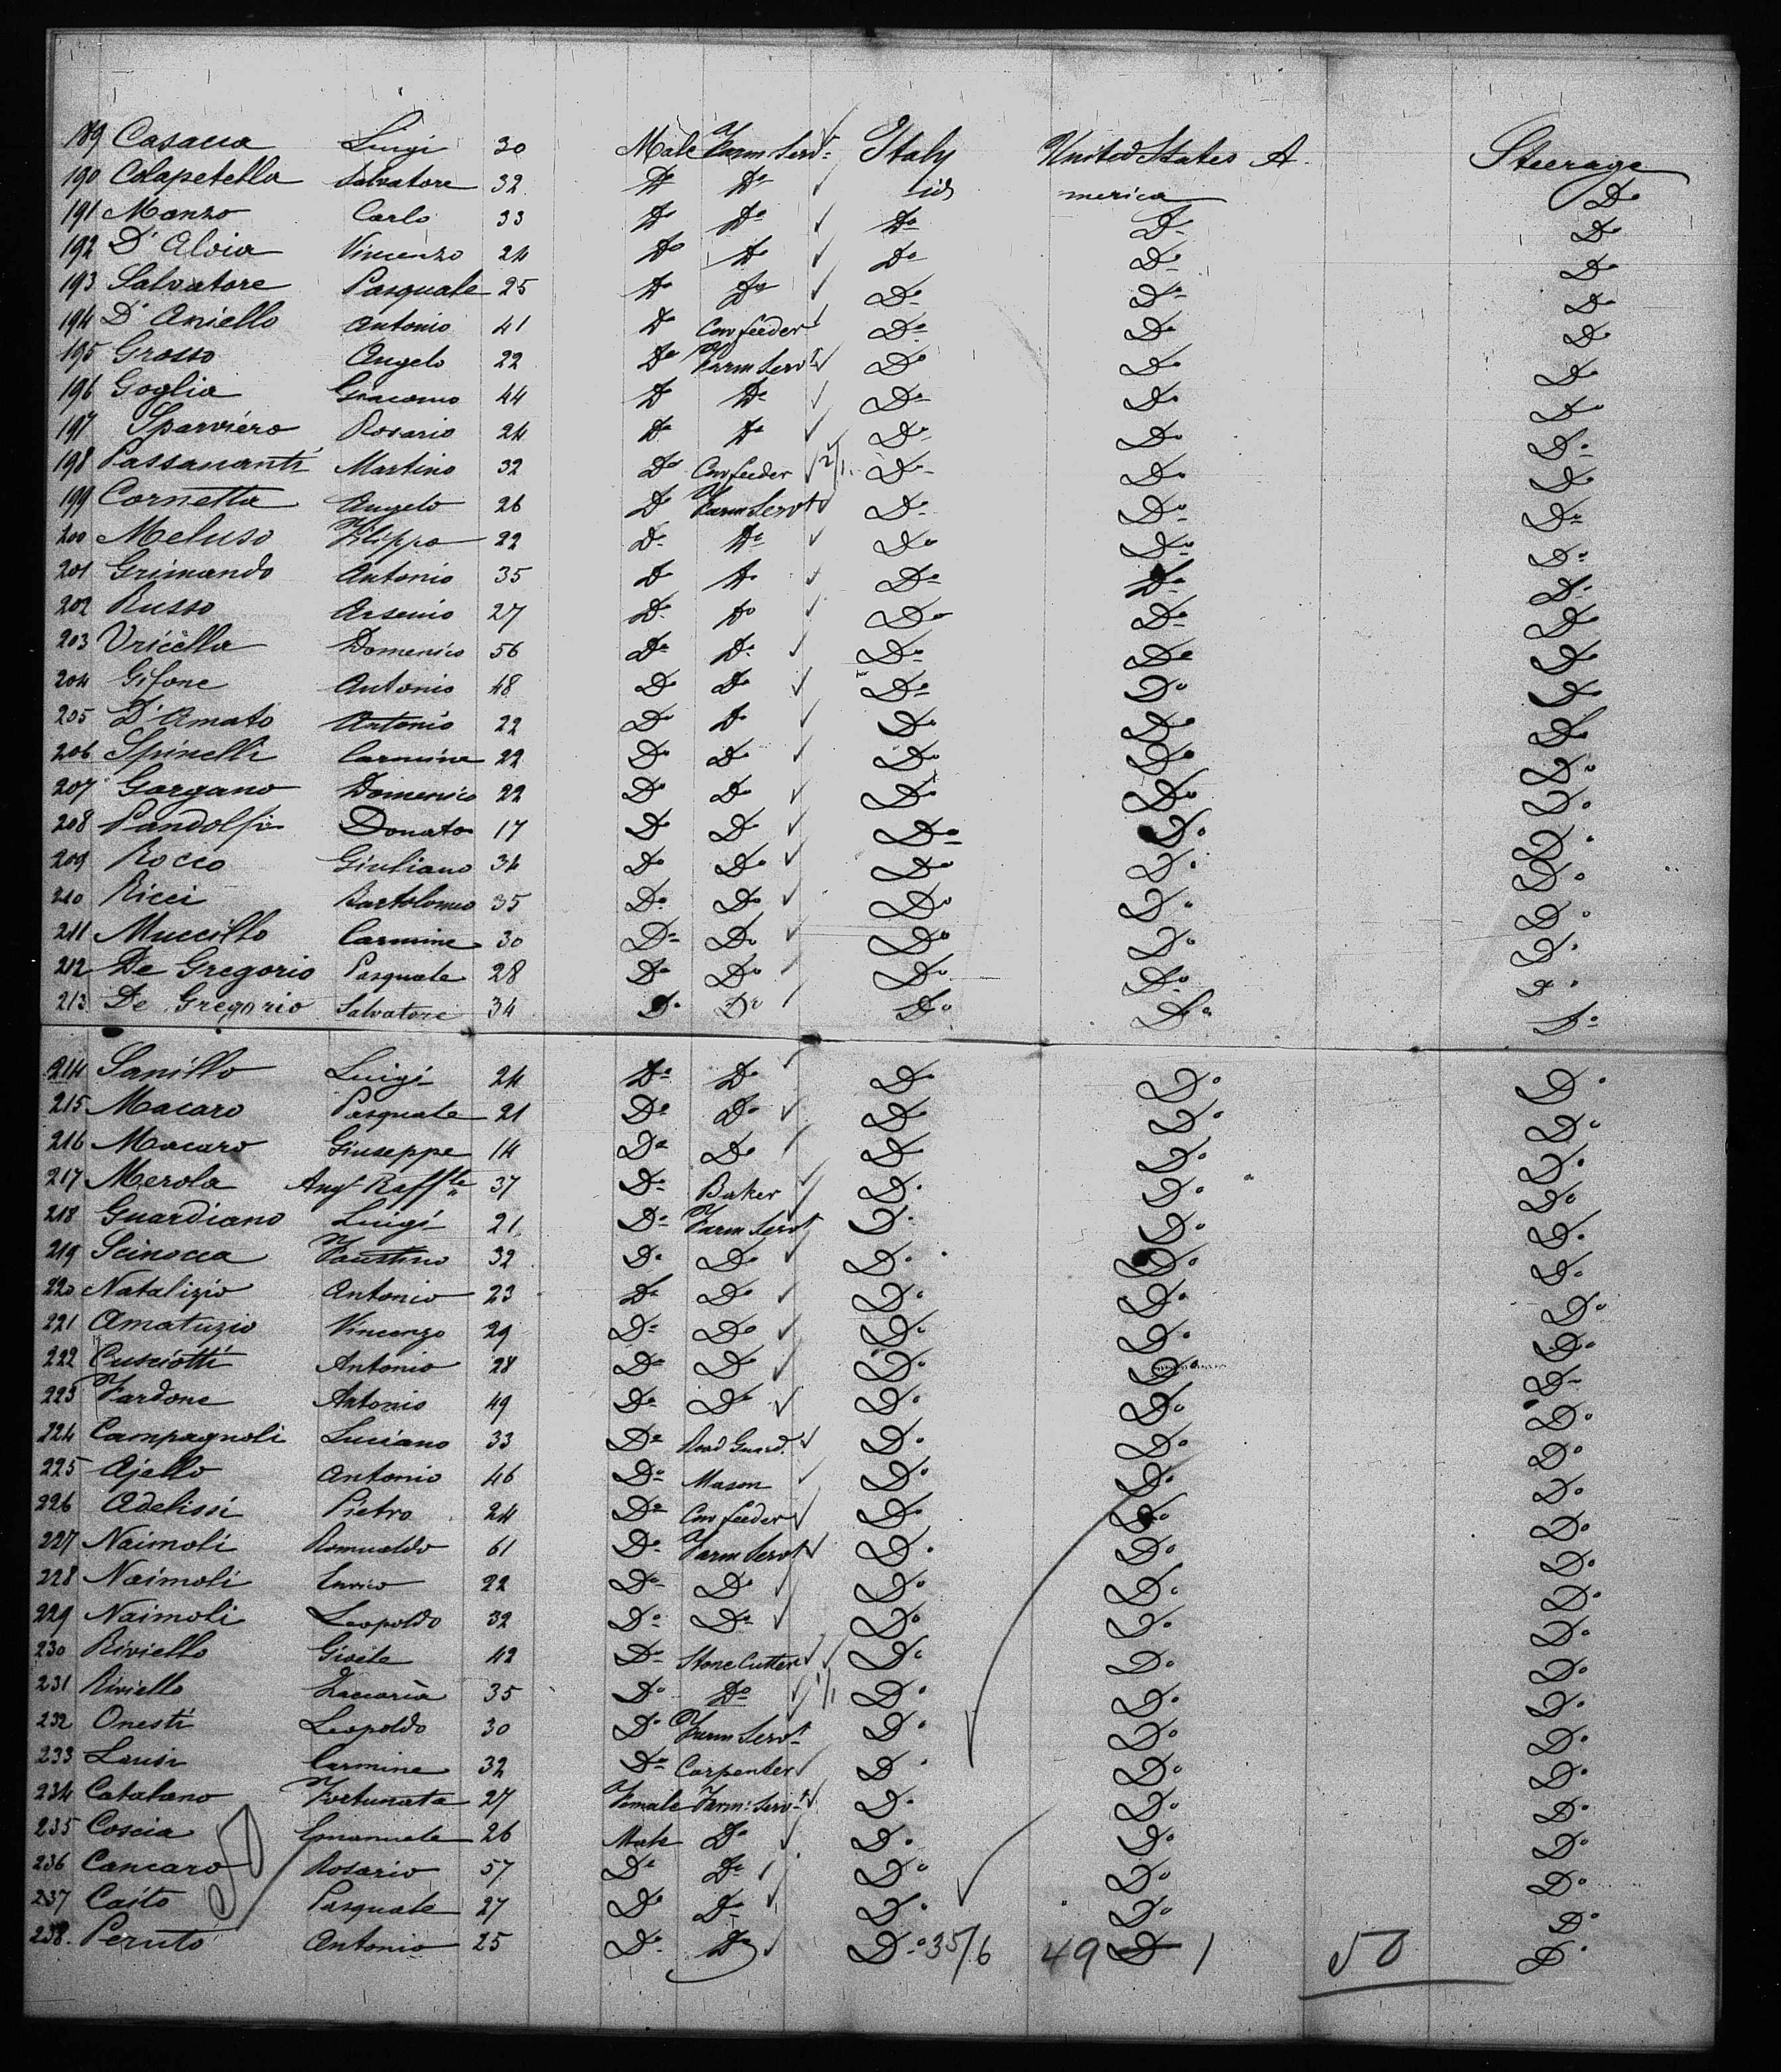 189 Casacca Luigi 30 Male Farm Servt Italy United States A- Steerage
190 Colapetella Salvatore 32 Do Do id merica Do
191 Manzo Carlo 33 Do Do Do Do Do
192 D'Aloia Vincenzo 24 Do Do Do Do Do
193 Salvatore Pasquale 25 Do Do Do Do Do
194 D'Aniello Antonio 41 Do Cowfeeder Do Do Do
195 Grosso Angelo 22 Do Farm Servt Do Do Do
196 Goglia Giacomo 44 Do Do Do Do Do
197 Sparviero Rosario 24 Do Do Do Do Do
198 Passananti Martino 32 Do Cowfeeder 2/1 Do Do Do
199 Cornetta Angelo 26 Do Farm Servt Do Do Do
200 Meluso Filippo 22 Do Do Do Do Do
201 Grimando Antonio 35 Do Do Do Do Do
202 Russo Arsenio 27 Do Do Do Do Do
203 Vricella Domenico 56 Do Do Do Do Do
204 Gifone Antonio 48 Do Do Do Do Do
205 D'Amato Antonio 22 Do Do Do Do Do
206 Spinelli Carmine 22 Do Do Do Do Do
207 Gargano Domenico 22 Do Do Do Do Do
208 Pandolfi Donato 17 Do Do Do Do Do
209 Rocco Giuliano 34 Do Do Do Do Do
210 Ricci Bartolomeo 35 Do Do Do Do Do
211 Muccillo Carmine 30 Do Do Do Do Do
212 De Gregorio Pasquale 28 Do Do Do Do Do
213 De Gregorio Salvatore 34 Do Do Do Do Do
214 Sanillo Luigi 24 Do Do Do Do Do
215 Macaro Pasquale 21 Do Do Do Do Do
216 Macaro Giuseppe 14 Do Do Do Do Do
217 Merola Angl Raffle 37 Do Baker Do Do Do
218 Guardiano Luigi 21 Do Farm Servt Do Do Do
219 Scinocca Faustino 32 Do Do Do Do Do
220 Natalizio Antonio 23 Do Do Do Do Do
221 Amatuzio Vincenzo 29 Do Do Do Do Do
222 Cusciotti Antonio 28 Do Do Do Do Do
223 Fardone Antonio 49 Do Do Do Do Do
224 Campagnoli Luciano 33 Do Road Guard Do Do Do
225 Ajello Antonio 46 Do Mason Do Do Do
226 Adelissi Pietro 24 Do Cowfeeder Do Do Do
227 Naimoli Romualdo 61 Do Farm Servt Do Do Do
228 Naimoli Enrico 22 Do Do Do Do Do
229 Naimoli Leopoldo 32 Do Do Do Do Do
230 Riviello Gioele 42 Do Stone Cutter Do Do Do
231 Riviello Zaccaria 35 Do Do 1/1 Do Do Do
232 Onesti Leopoldo 30 Do Farm Servt Do Do Do
233 Carmine 32 Do Carpenter Do Do Do
234 Catalano Fortunata 27 Female Farm Servt Do Do Do
235 Coscia Emanuele 26 Male Do Do Do Do
236 Cancaro Rosario 57 Do Do Do Do Do
237 Caito Pasquale 27 Do Do Do Do Do
238 Peruto Antonio 25 Do Do Do 35/6 49 Do 1 50 Do